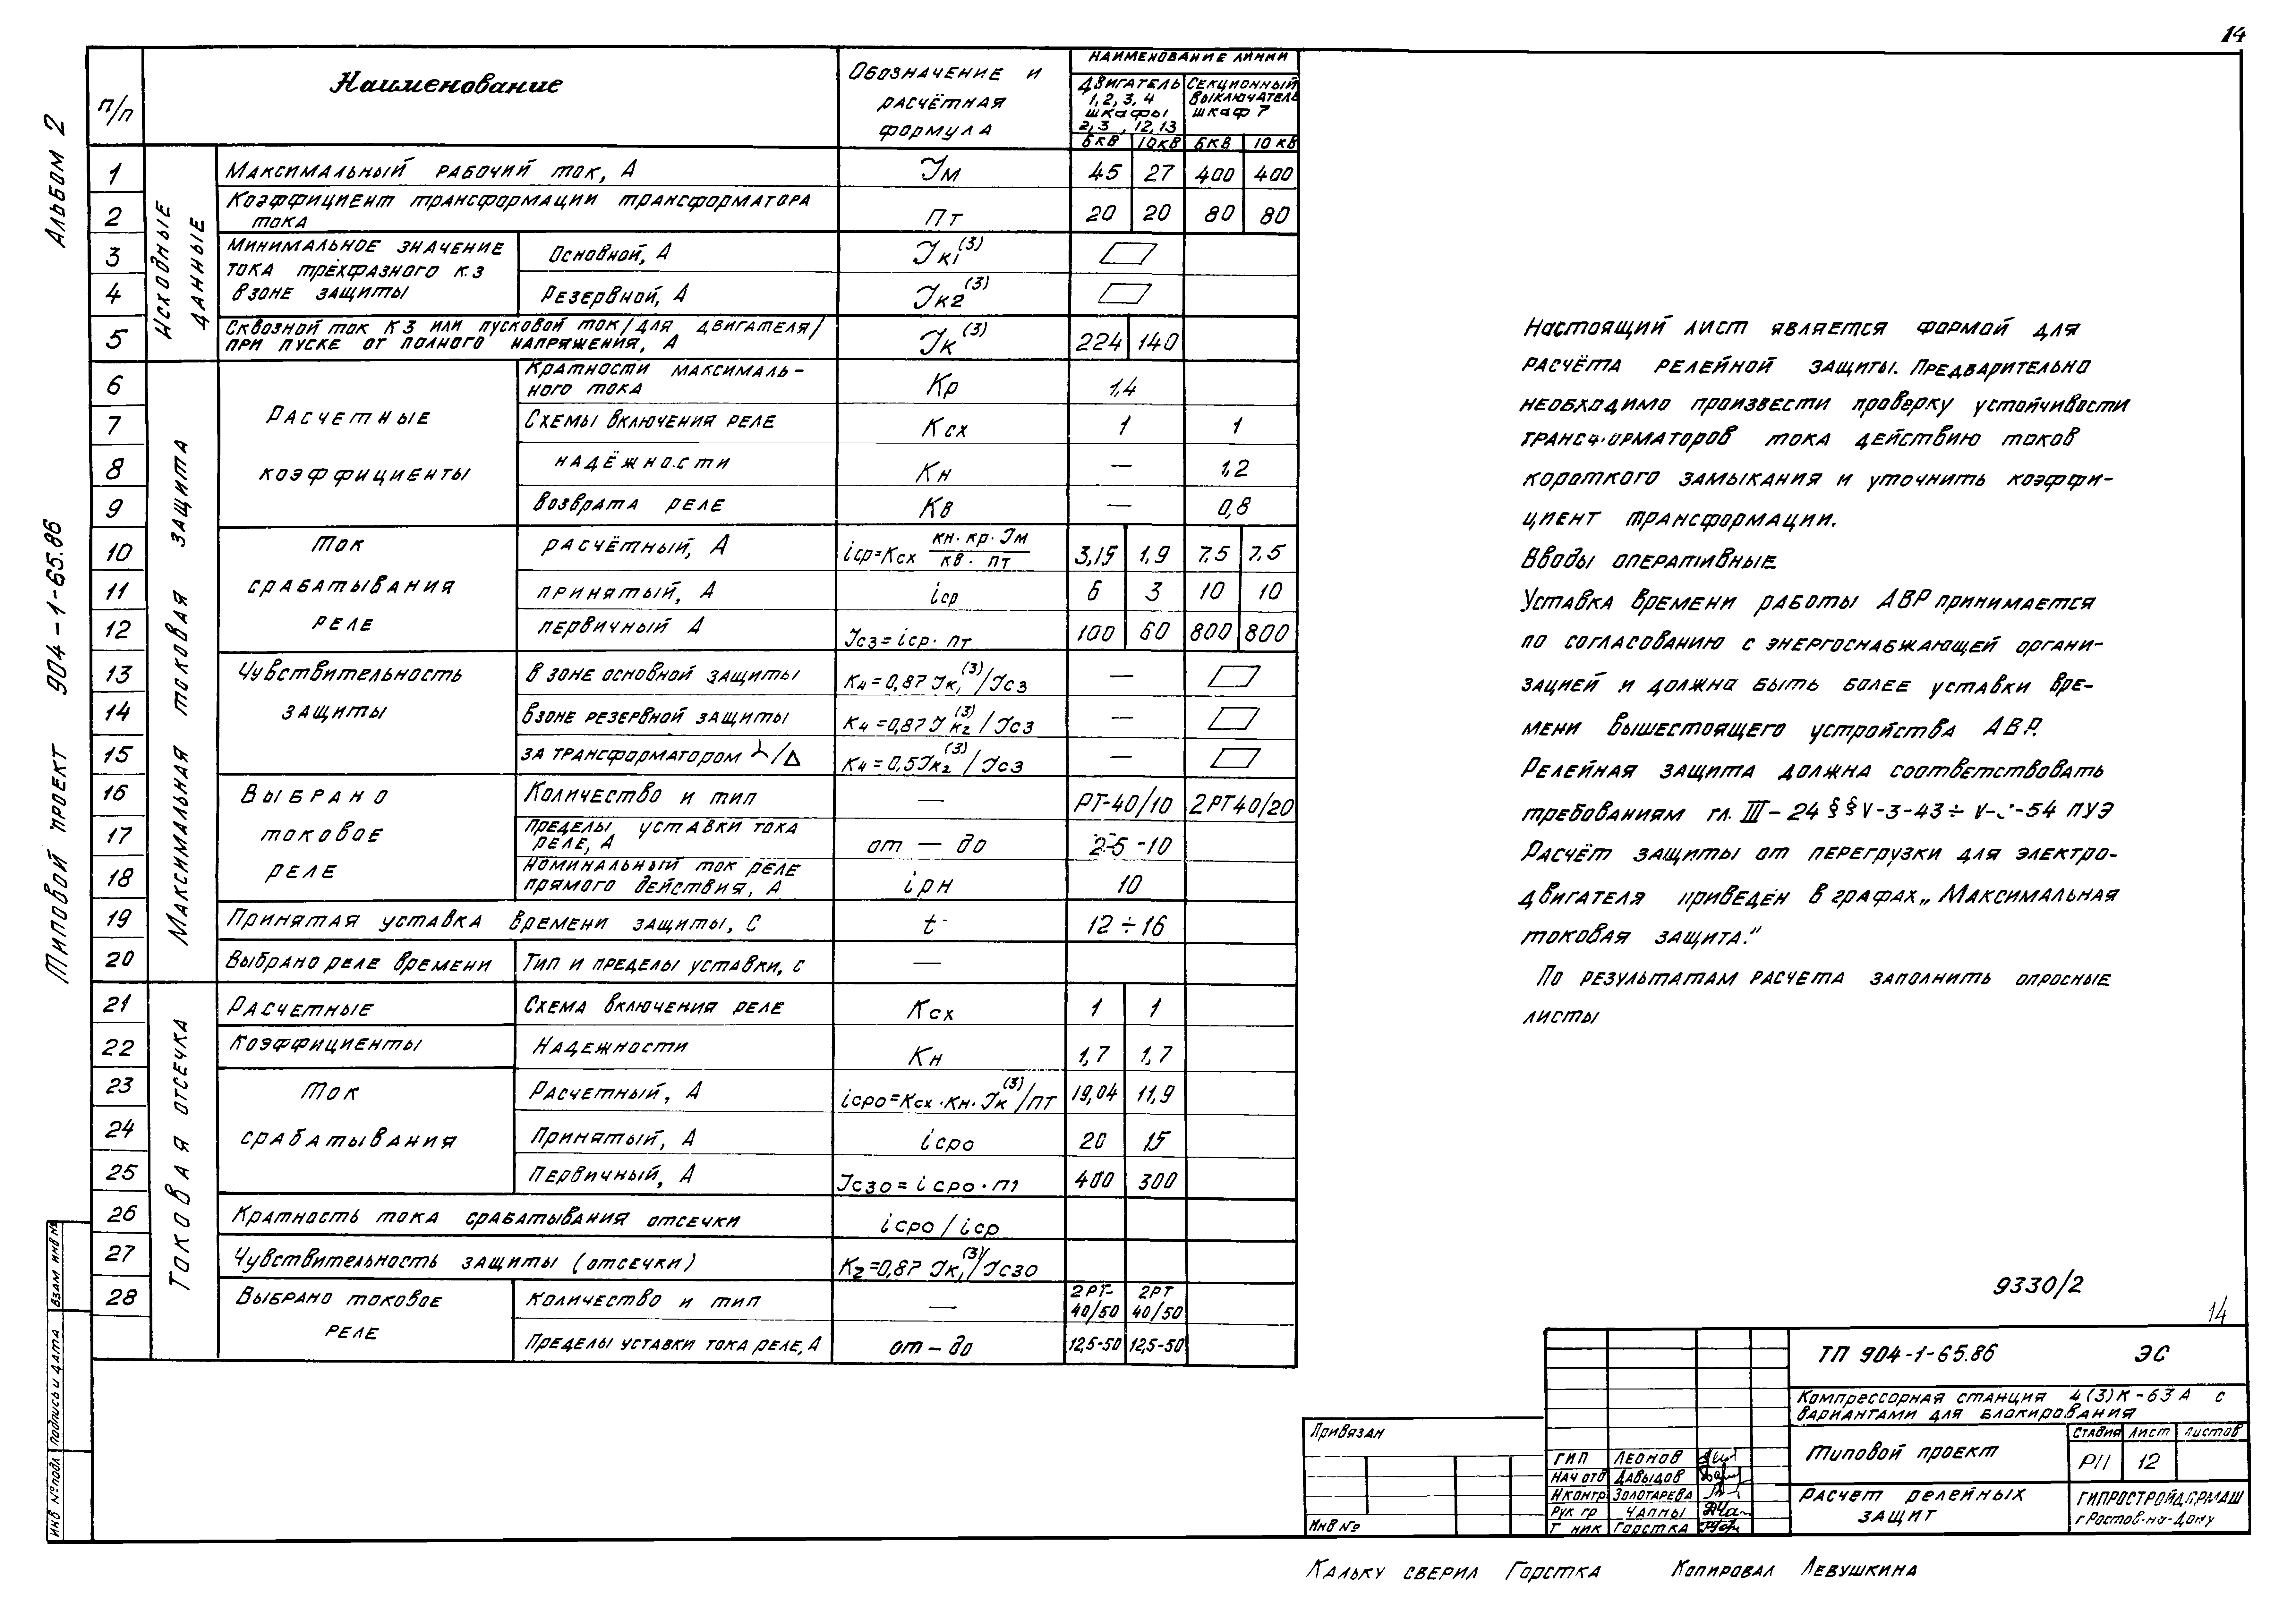 14
Альбом 2
Типовой проект 904-1-65.86
п/п
Наименование
Обозначение и
расчётная
формула
Наименование линии
Двигатель
1, 2, 3, 4
шкафы
2, 3, 12, 13
Секционный
выключатель
шкаф 7
6кв 10кв 6кв 10 кв
Исходные данные
1 Максимальный рабочий ток, А Jм 45 27 400 400
2 Коэффициент трансформации трансформатора
тока пт 20 20 80 80
Минимальное значение
тока трёхфазного к.з
в зоне защиты
3 Основной, А Jк1(3)
4 Резервной, А Jк2(3)
5 Сквозной ток КЗ или пусковой ток /для двигателя/
при пуске от полного напряжения, А Jк(3) 224 140
Максимальная токовая защита
Расчетные
коэффициенты
6 Кратности максималь-
ного тока Кр 1,4
7 Схемы включения реле Ксх 1 1
8 надёжности Кн — 1,2
9 возврата реле Кв — 0,8
Ток
срабатывания
реле
10 расчётный, А iср=Ксх кн·кр·Jм / кв·пт 3,15 1,9 7,5 7,5
11 принятый, А iср 6 3 10 10
12 первичный А Jсз=iср·пт 100 60 800 800
Чувствительность
защиты
13 в зоне основной защиты Кч=0,87 Jк1(3)/Jсз —
14 в зоне резервной защиты Кч=0,87 Jк2(3)/Jсз —
15 за трансформатором ⅄/Δ Кч=0,5Jк2(3)/Jсз —
Выбрано
токовое
реле
16 Количество и тип — РТ-40/10 2РТ40/20
17 Пределы уставки тока
реле, А от — до 2,5 -10
18 Номинальный ток реле
прямого действия, А iрн 10
19 Принятая уставка времени защиты, С t 12 ÷ 16
20 Выбрано реле времени Тип и пределы уставки, с —
Токовая отсечка
21 Расчетные Схема включения реле Ксх 1 1
22 Коэффициенты Надежности Кн 1,7 1,7
Ток
срабатывания
23 Расчетный, А iсро=Ксх·Кн·Jк(3)/пт 19,04 11,9
24 Принятый, А iсро 20 15
25 Первичный, А Jсзо=iсро·пт 400 300
26 Кратность тока срабатывания отсечки iсро/iср
27 Чувствительность защиты (отсечки) К2=0,87 Jк1(3)/Jсзо
28 Выбрано токовое
реле
Количество и тип — 2РТ-
40/50 2РТ
40/50
Пределы уставки тока реле, А от – до 12,5-50 12,5-50
Настоящий лист является формой для
расчёта релейной защиты. Предварительно
необходимо произвести проверку устойчивости
трансформаторов тока действию токов
короткого замыкания и уточнить коэффи-
циент трансформации.
Вводы оперативные
Уставка времени работы АВР принимается
по согласованию с энергоснабжающей органи-
зацией и должна быть более уставки вре-
мени вышестоящего устройства АВР.
Релейная защита должна соответствовать
требованиям гл. III – 24 §§ V-3-43 ÷ V-3-54 ПУЭ
Расчёт защиты от перегрузки для электро-
двигателя приведён в графах „Максимальная
токовая защита."
По результатам расчета заполнить опросные
листы
9330/2
14
ТП 904-1-65.86 ЭС
Компрессорная станция 4(3)К-63А с
вариантами для блокирования
Типовой проект
Стадия Лист Листов
РП 12
Расчет релейных
защит
Гипростройдормаш
г Ростов-на-Дону
Привязан
Инв №
ГИП Леонов
Нач отд Давыдов
Н контр Золотарева
Рук гр Чапны
Т ник Горстка
Взам инв №
Подпись и дата
Инв № подл
Кальку сверил Горстка Копировал Левушкина